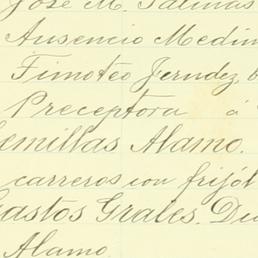 José M. Salinas
Ausencio Medin
Timoteo Jerndez
Preceptora á
emillas Alamo.
carreros con frijól
Gastos Grales. Di
Alamo.